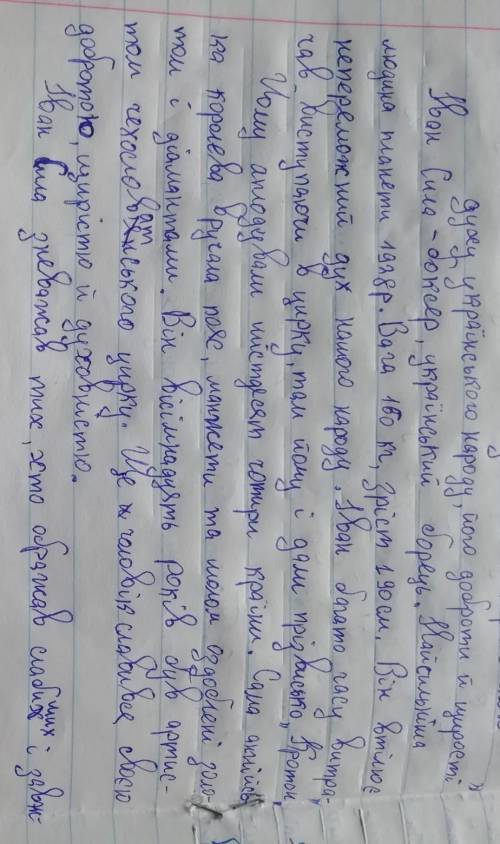 духу українського народу, його доброти й щирості
Іван Сила - боксер, український борець. Найсильніша
людина планети 1928р. Вага 160 кг, зріст 190см. Він втілює
непереможний дух нашого народу. Іван багато часу витра-
чав виступаючи в цирку, там йому і дали прізвисько „Кротон“
Йому аплодували шістдесят чотири країни. Сама англійсь-
ка королева вручала пояс, манжети та шолом оздоблені золо-
том і діамантами. Він вісімнадцять років був артис-
том чехословатського цирку. Ще ж чоловік славився своєю
добротою, щирістю й духовністю.
Іван Сила зневажав тих, хто ображав слабших і завж-